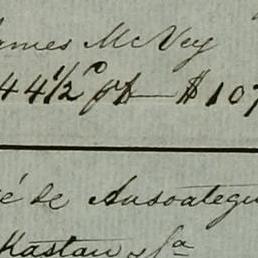 James McVey
44 1/2° pt — $107
é de Ansoategu
Kastan y fa